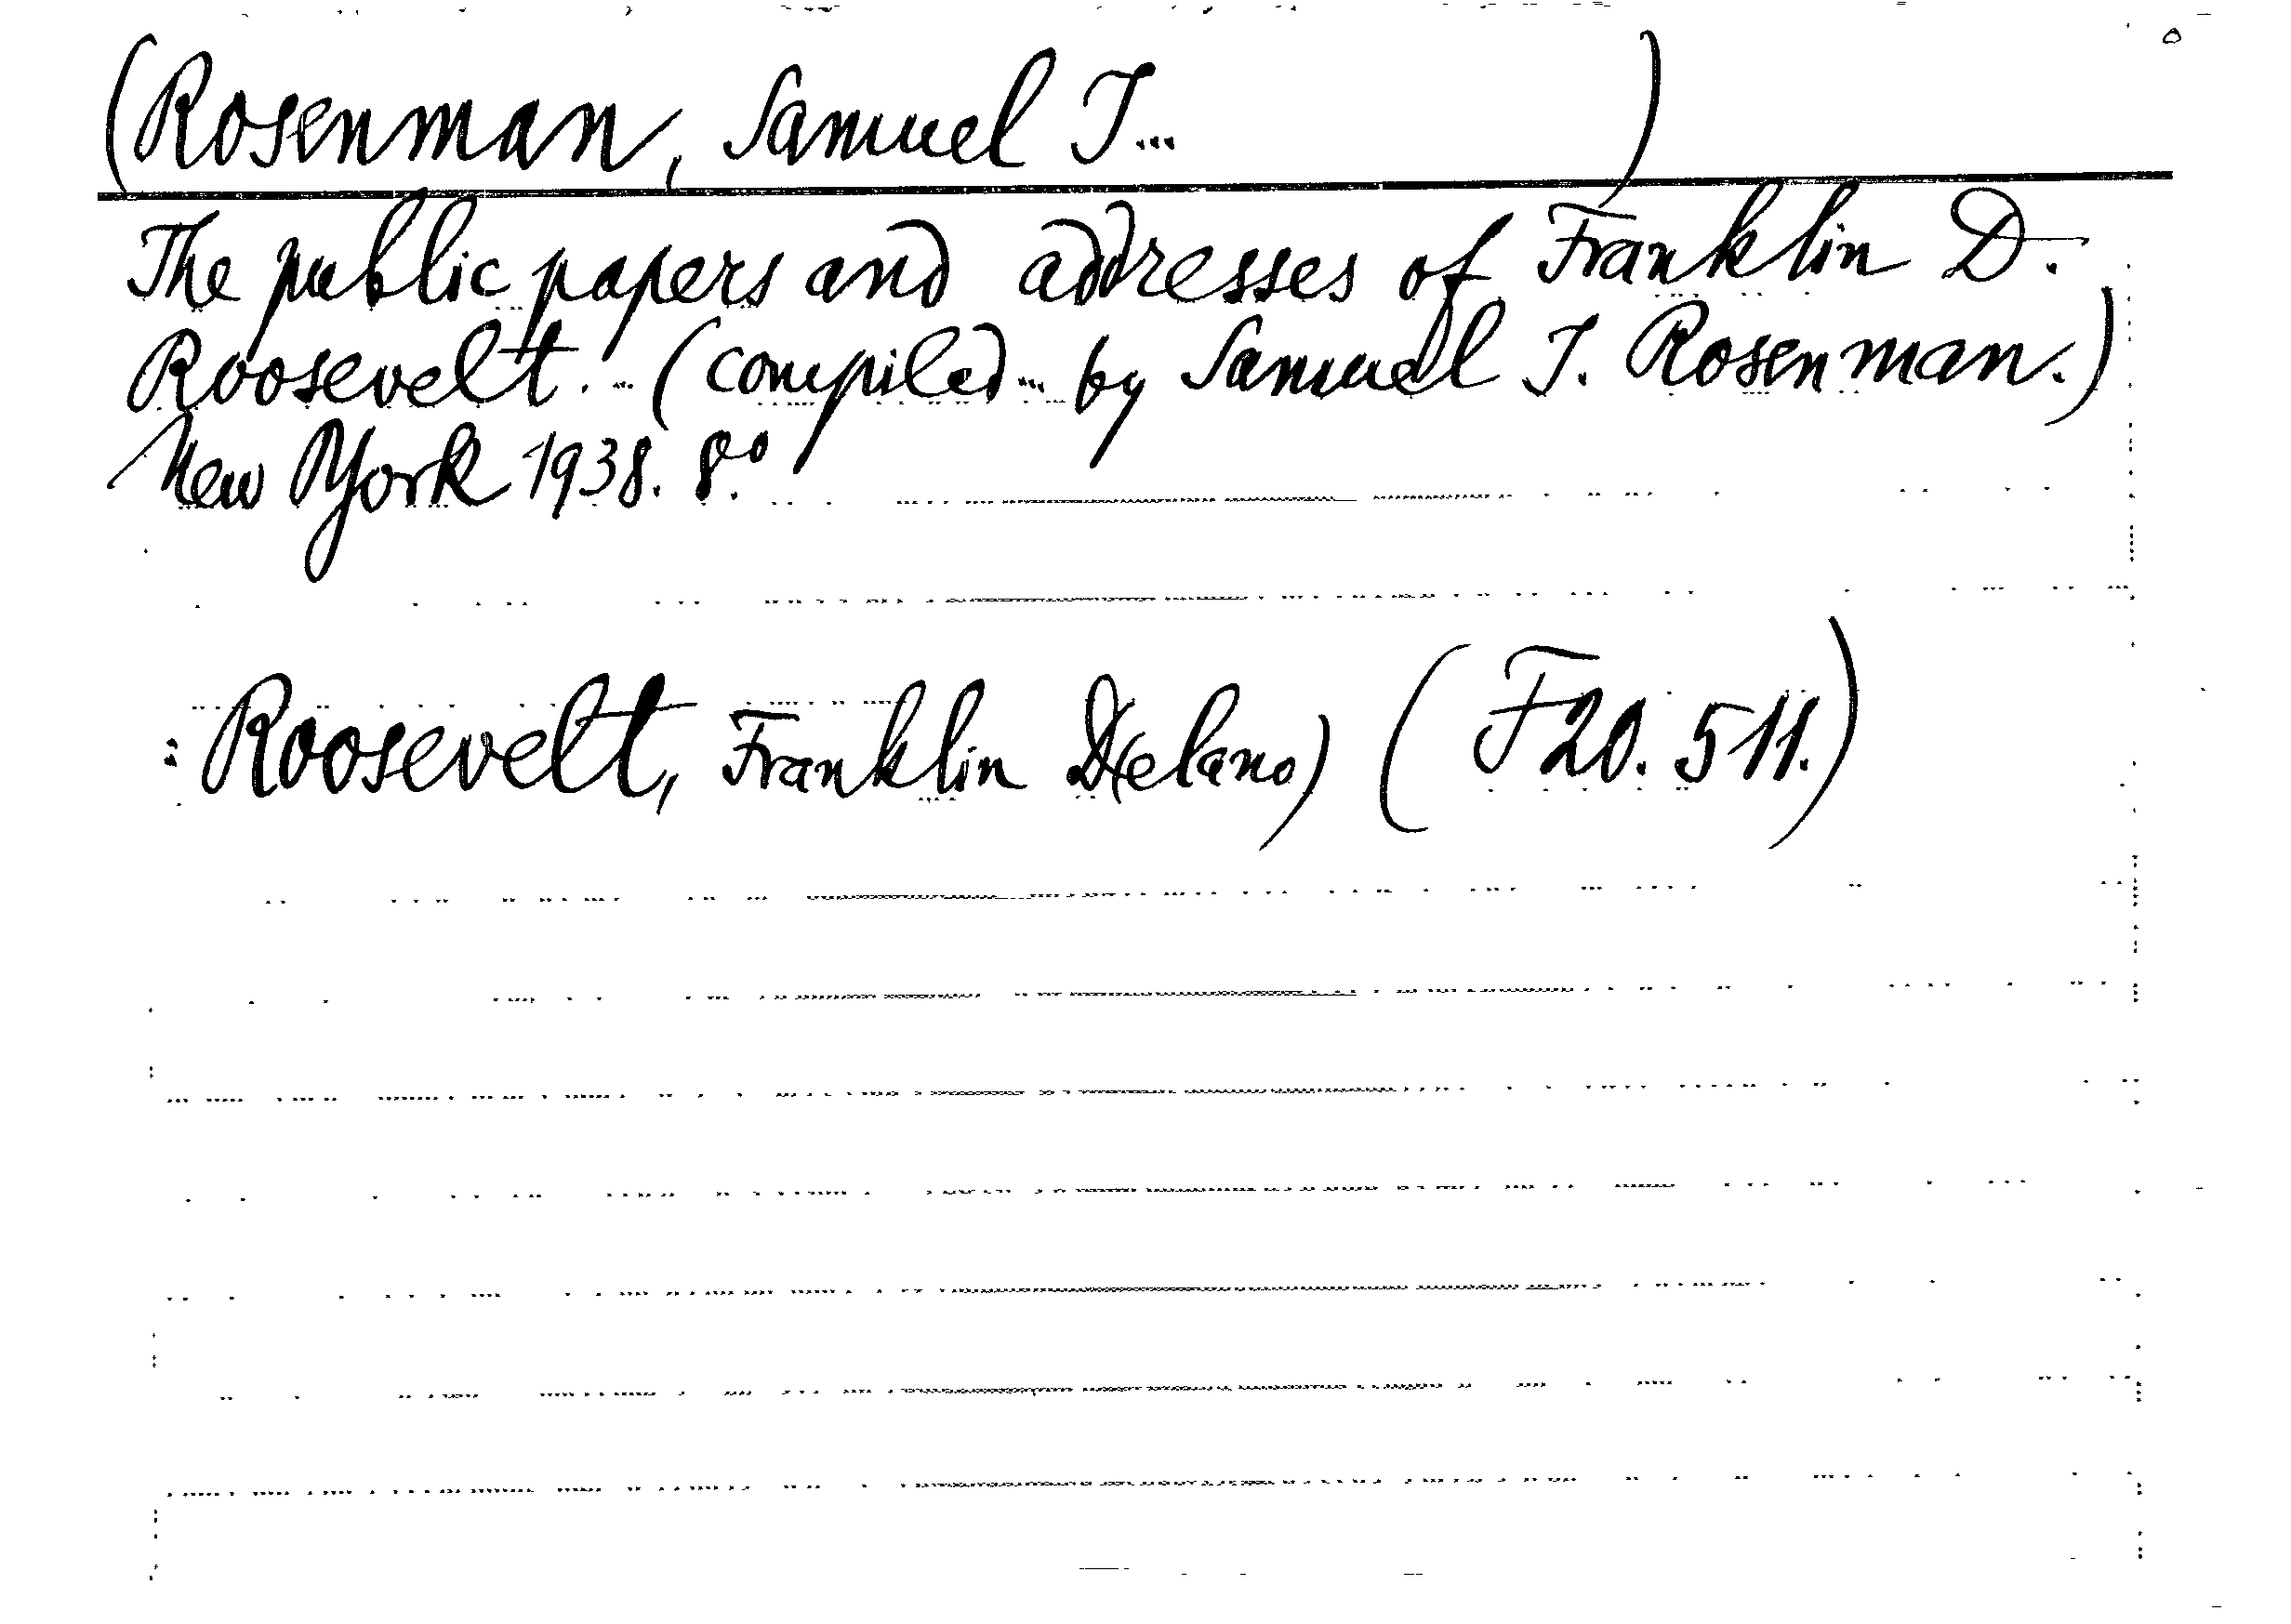 (Rosenman, Samuel I... )
The public papers and addresses of Franklin D.
Roosevelt... (compiled... by Samuel I. Rosenman.)
New York 1938. 8.°
: Roosevelt, Franklin D(elano) (F20.511.)